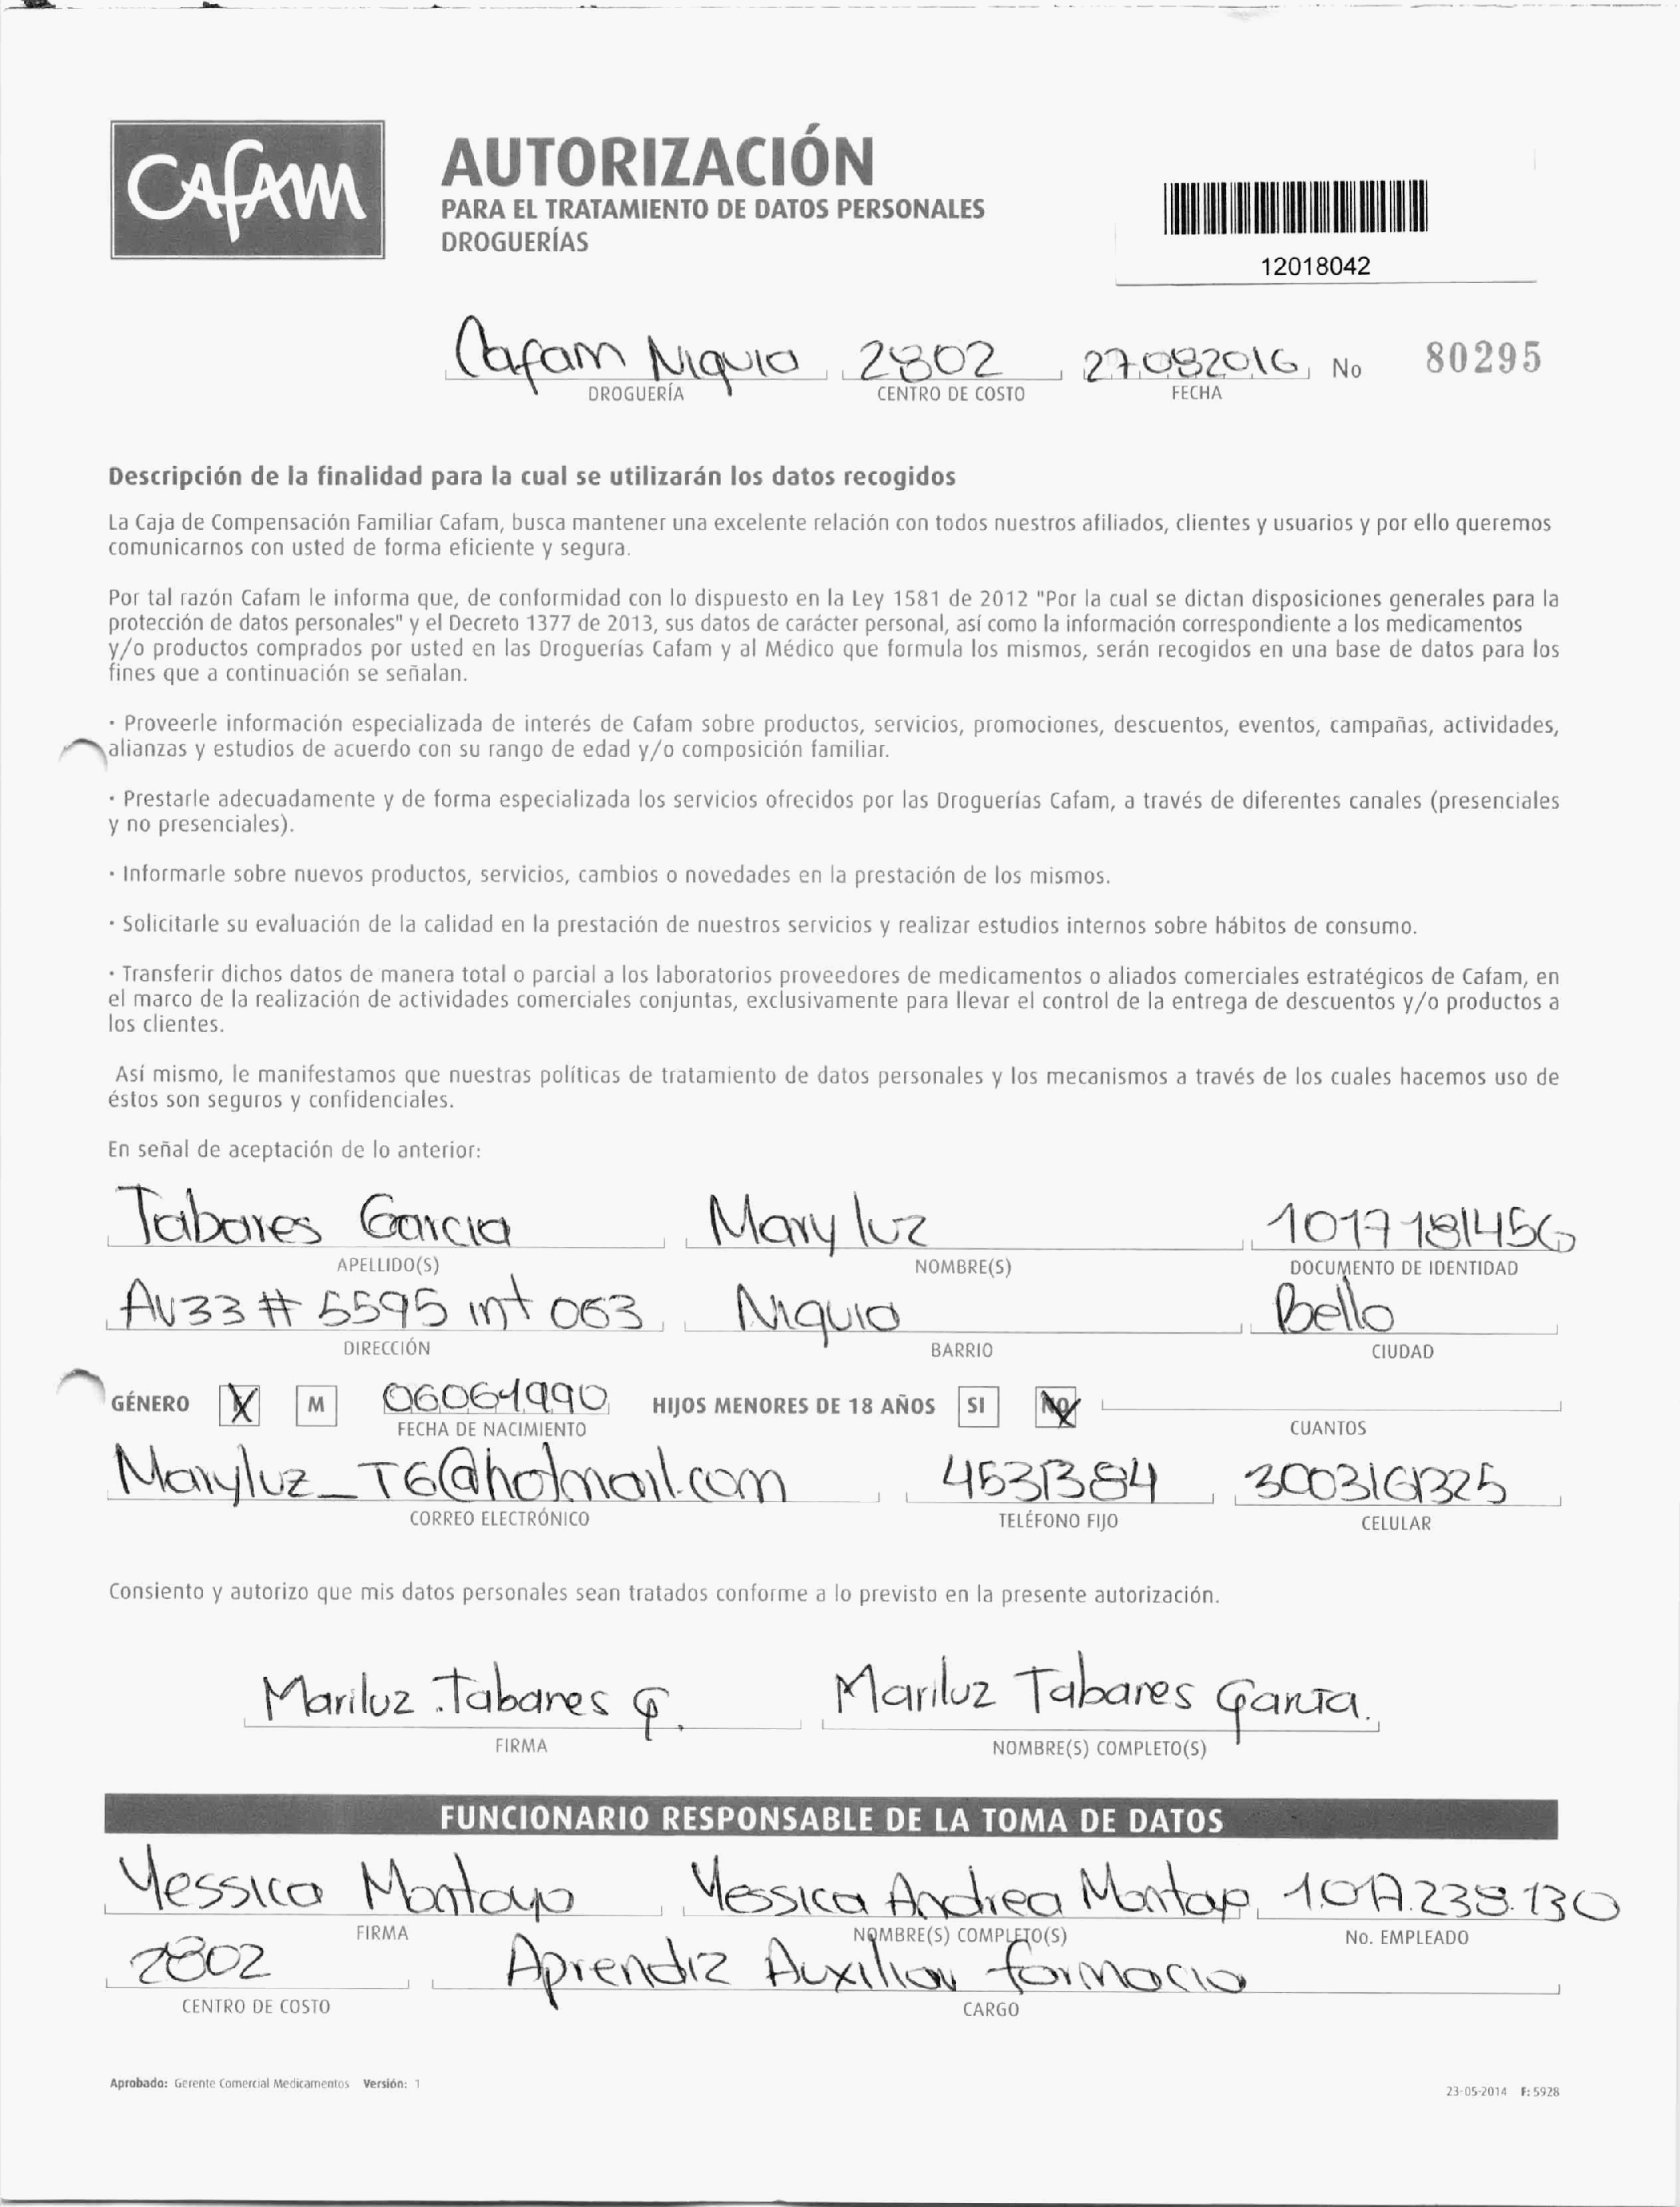 CAFAM
AUTORIZACIÓN
PARA EL TRATAMIENTO DE DATOS PERSONALES
DROGUERÍAS
12018042
Cafam Niquia 2802 27082016 No 80295
DROGUERÍA CENTRO DE COSTO FECHA
Descripción de la finalidad para la cual se utilizarán los datos recogidos
La Caja de Compensación Familiar Cafam, busca mantener una excelente relación con todos nuestros afiliados, clientes y usuarios y por ello queremos
comunicarnos con usted de forma eficiente y segura.
Por tal razón Cafam le informa que, de conformidad con lo dispuesto en la Ley 1581 de 2012 "Por la cual se dictan disposiciones generales para la
protección de datos personales" y el Decreto 1377 de 2013, sus datos de carácter personal, así como la información correspondiente a los medicamentos
y/o productos comprados por usted en las Droguerías Cafam y al Médico que formula los mismos, serán recogidos en una base de datos para los
fines que a continuación se señalan.
· Proveerle información especializada de interés de Cafam sobre productos, servicios, promociones, descuentos, eventos, campañas, actividades,
alianzas y estudios de acuerdo con su rango de edad y/o composición familiar.
· Prestarle adecuadamente y de forma especializada los servicios ofrecidos por las Droguerías Cafam, a través de diferentes canales (presenciales
y no presenciales).
· Informarle sobre nuevos productos, servicios, cambios o novedades en la prestación de los mismos.
· Solicitarle su evaluación de la calidad en la prestación de nuestros servicios y realizar estudios internos sobre hábitos de consumo.
· Transferir dichos datos de manera total o parcial a los laboratorios proveedores de medicamentos o aliados comerciales estratégicos de Cafam, en
el marco de la realización de actividades comerciales conjuntas, exclusivamente para llevar el control de la entrega de descuentos y/o productos a
los clientes.
Así mismo, le manifestamos que nuestras políticas de tratamiento de datos personales y los mecanismos a través de los cuales hacemos uso de
éstos son seguros y confidenciales.
En señal de aceptación de lo anterior:
Tabares Garcia Mary luz 1017181456
APELLIDO(S) NOMBRE(S) DOCUMENTO DE IDENTIDAD
AV33 # 5595 int 063 Niquia Bello
DIRECCIÓN BARRIO CIUDAD
GÉNERO X M 06061990 HIJOS MENORES DE 18 AÑOS SI NO
FECHA DE NACIMIENTO CUANTOS
Maryluz_T6@hotmail.com 4531384 3003161325
CORREO ELECTRÓNICO TELÉFONO FIJO CELULAR
Consiento y autorizo que mis datos personales sean tratados conforme a lo previsto en la presente autorización.
Mariluz Tabares G. Mariluz Tabares Garcia.
FIRMA NOMBRE(S) COMPLETO(S)
FUNCIONARIO RESPONSABLE DE LA TOMA DE DATOS
Yessica Montoya Yessica Andrea Montoya 1.017.238.130
FIRMA NOMBRE(S) COMPLETO(S) No. EMPLEADO
2802 Aprendiz Auxiliar farmacia
CENTRO DE COSTO CARGO
Aprobado: Gerente Comercial Medicamentos Versión: 1
23-05-2014 F: 5928